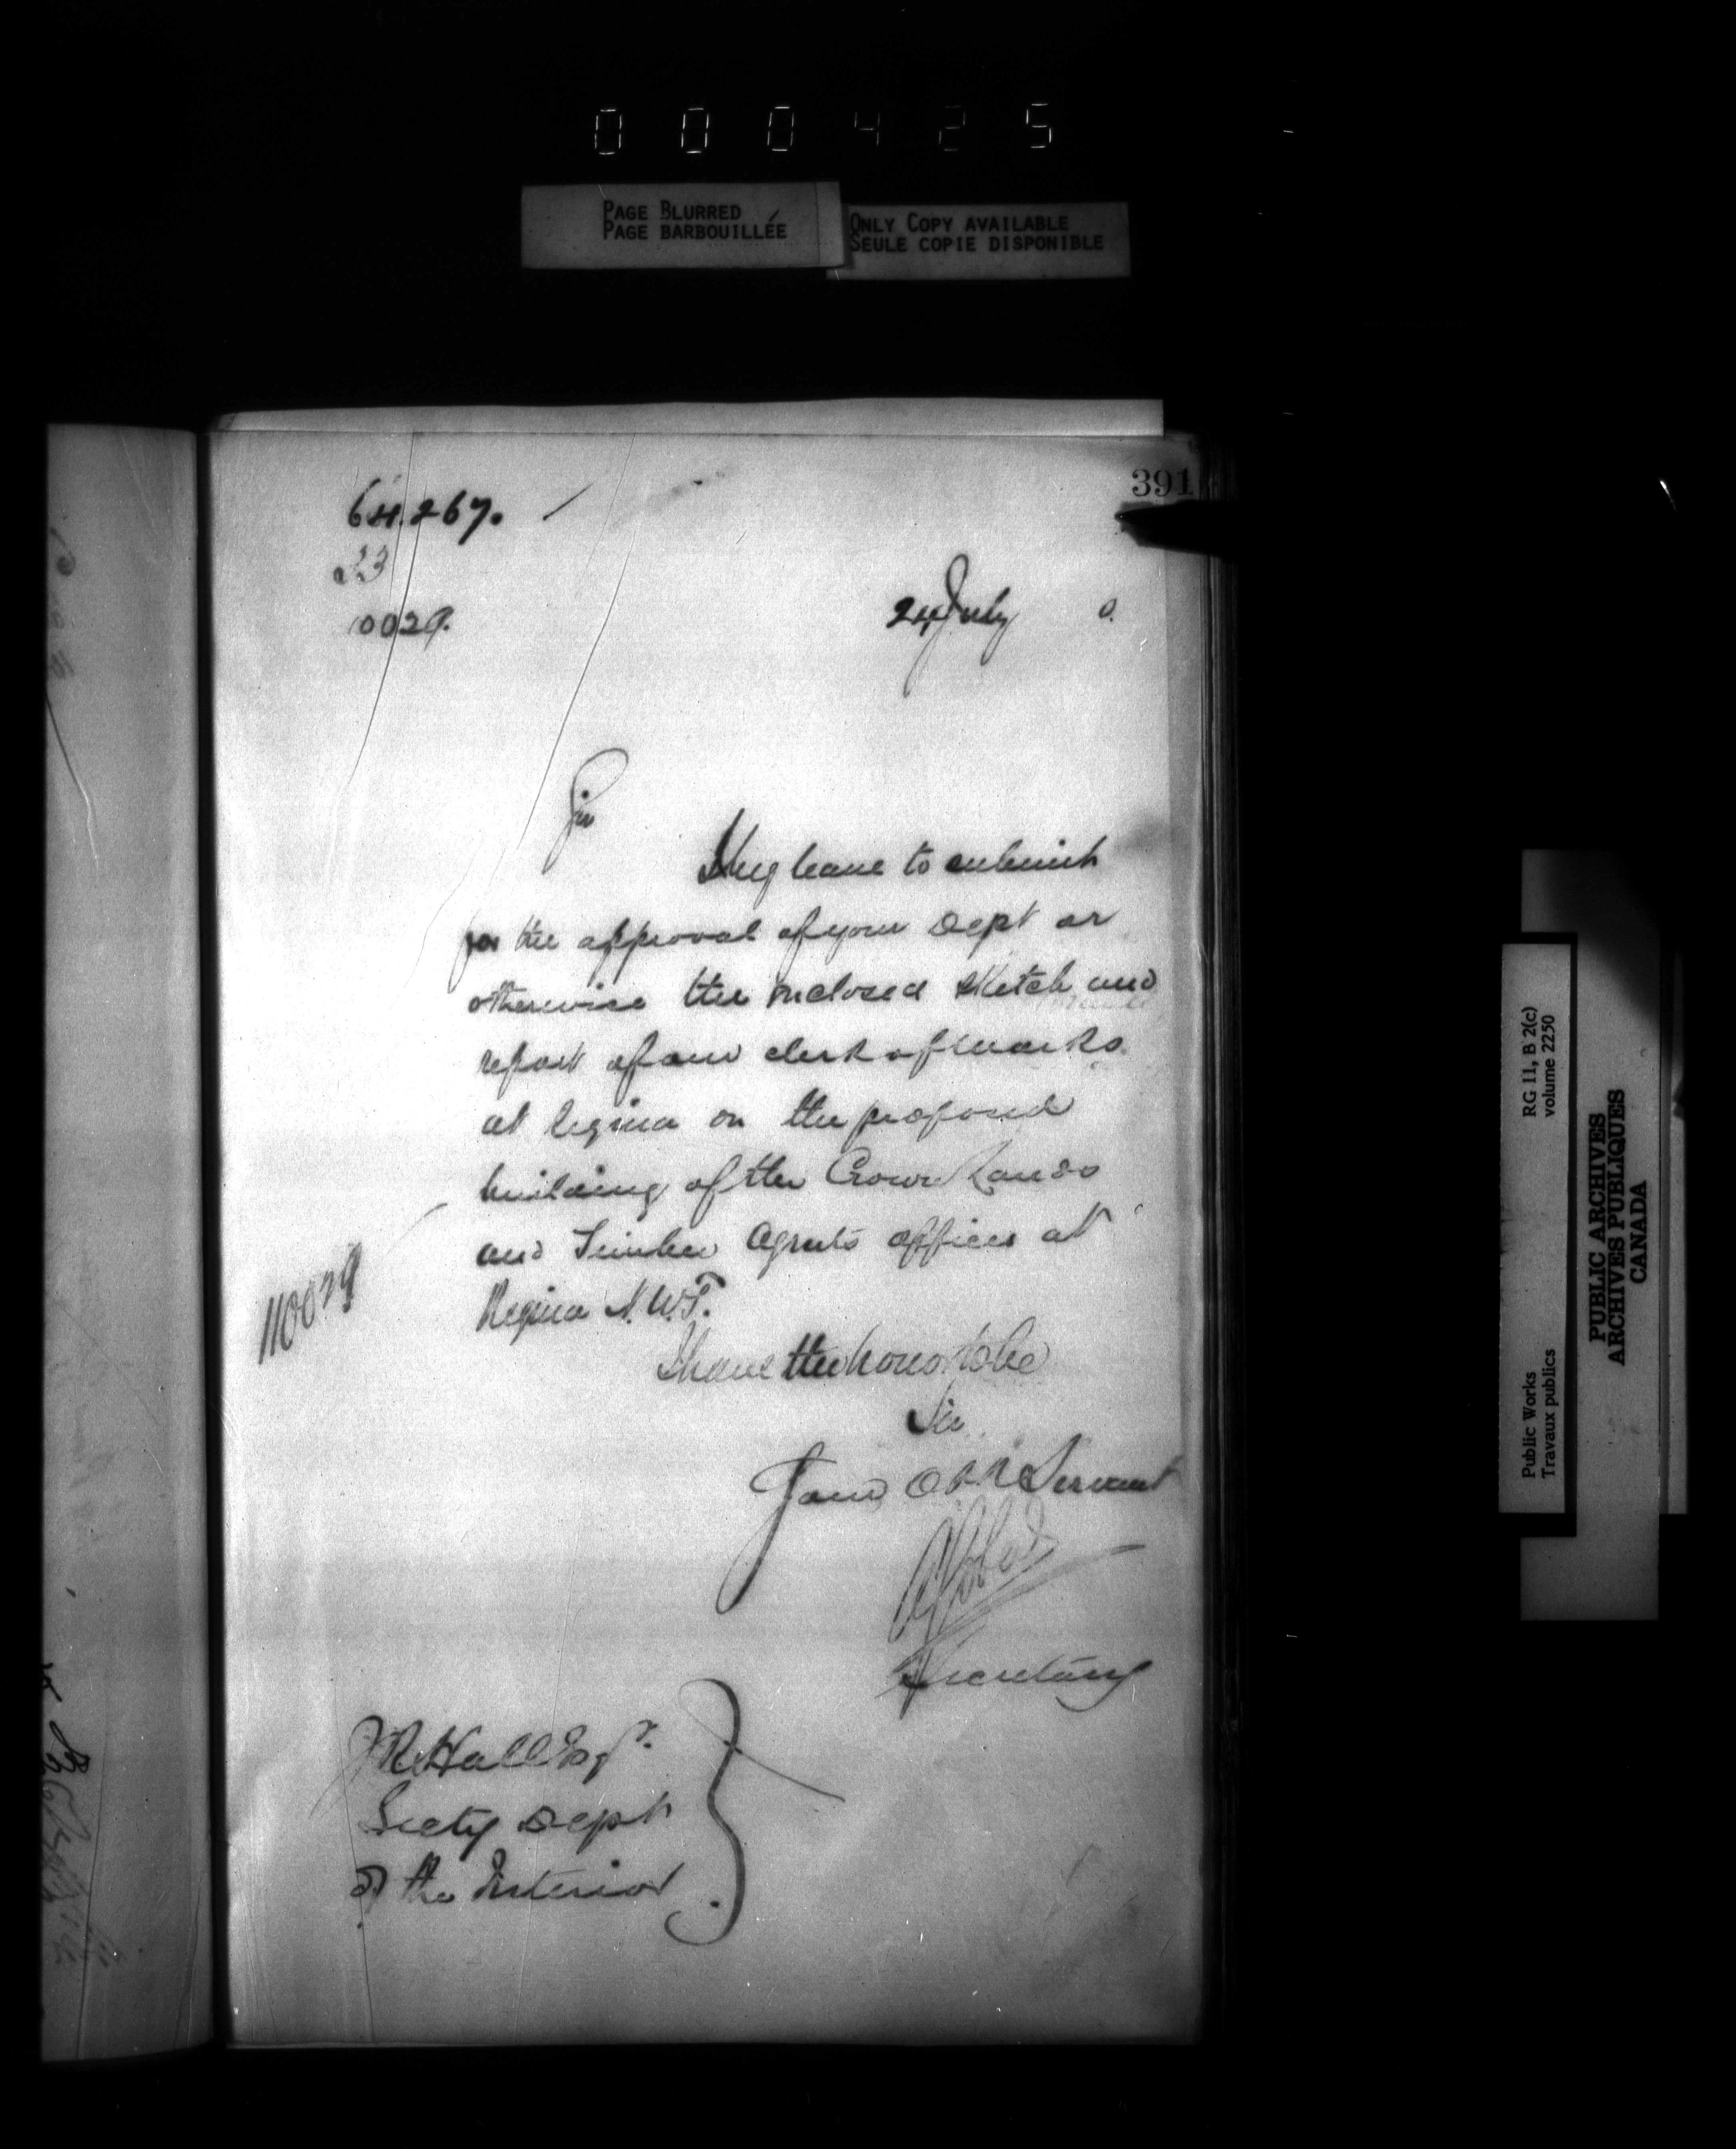 000425
PAGE BLURRED
PAGE BARBOUILLÉE
ONLY COPY AVAILABLE
SEULE COPIE DISPONIBLE
391
64.267.
33
10029.
24 July 0.
Sir
I beg leave to submit
for the approval of your Dept or
otherwise the enclosed sketch and
report of our clerk of works
at Regina on the proposed
building of the Crown Lands
and Timber Agents offices at
Regina N.W.T.
110029
I have the honor to be
Sir
Your Obt Servant
Secretary
J R Hall Esqr.
Secty Dept
of the Interior
RG 11, B 2(c)
volume 2250
Public Works
Travaux publics
PUBLIC ARCHIVES
ARCHIVES PUBLIQUES
CANADA